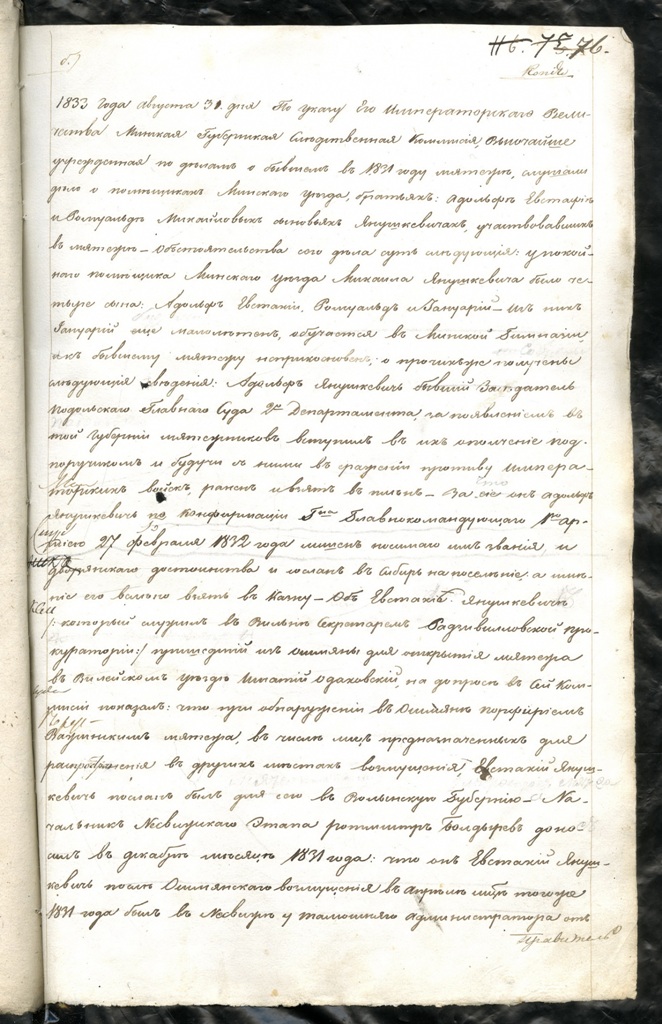 76.
Копія
1833 года августа 31 дня По указу Его Императорскаго Вели-
чества Минская Губернская Следственная Коммисія, Высочайше
учрежденная по деламъ о бывшемъ въ 1831 году мятеже, слушали
дело о помещикахъ Минскаго уезда, братьяхъ: Адольфе Евстафіе
и Ромуальде Михайловыхъ сыновьяхъ Янушкевичахъ, участвовавшихъ
въ мятеже – Обстоятельства сего дела суть следующія: у покой-
наго помещика Минскаго уезда Михаила Янушкевича было че-
тыре сына: Адольфъ Евстафій, Ромуальдъ и Януарій – изъ нихъ
Януарій еще малолетенъ, обучается въ Минской Гимназіи,
и къ бывшему мятежу неприкосновенъ; о прочихъ же получены
следующія сведенія: Адольфъ Янушкевичъ бывшій Заседатель
Подольскаго Главнаго Суда 2го Департамента, за появленіемъ въ
той Губерніи мятежниковъ вступилъ въ ихъ ополченіе под-
поручикомъ и будучи съ ними въ сраженіи противу Импера-
торскихъ войскъ, раненъ и взятъ въ пленъ – За сіе онъ Адольфъ
Янушкевичъ по конфирмаціи Гна Главнокомандующаго 1ю ар-
міею 27 февраля 1832 года лишенъ носимаго имъ званія, и
дворянскаго достоинства и сосланъ въ Сибирь на поселеніе: а име-
ніе его велено взять въ Казну – Объ Евстафіе Янушкевиче
/: который служилъ въ Вильне Секретаремъ Радзивилловской про-
кураторіи:/ пришедшій изъ Ошмяны для открытія мятежа
въ Вилейскомъ уезде Игнатій Одаховскій, на допросе въ сей Ком-
мисіи показалъ: что при обнаруженіи въ Ошмяне Порфиріемъ
Важинскимъ мятежа, въ числе лицъ предназначенныхъ для
распространенія въ другихъ местахъ возмущенія, Евстафій Януш-
кевичъ посланъ былъ для сего въ Волынскую Губернію – На-
чальникъ Несвижскаго Этапа ротмистръ Болдыревъ доно-
силъ въ декабре месяце 1831 года: что онъ Евстафій Януш-
кевичъ после Ошмянскаго возмущенія въ Апреле месяце того же
1831 года былъ въ Несвиже у тамошняго Администратора отъ
Правитель